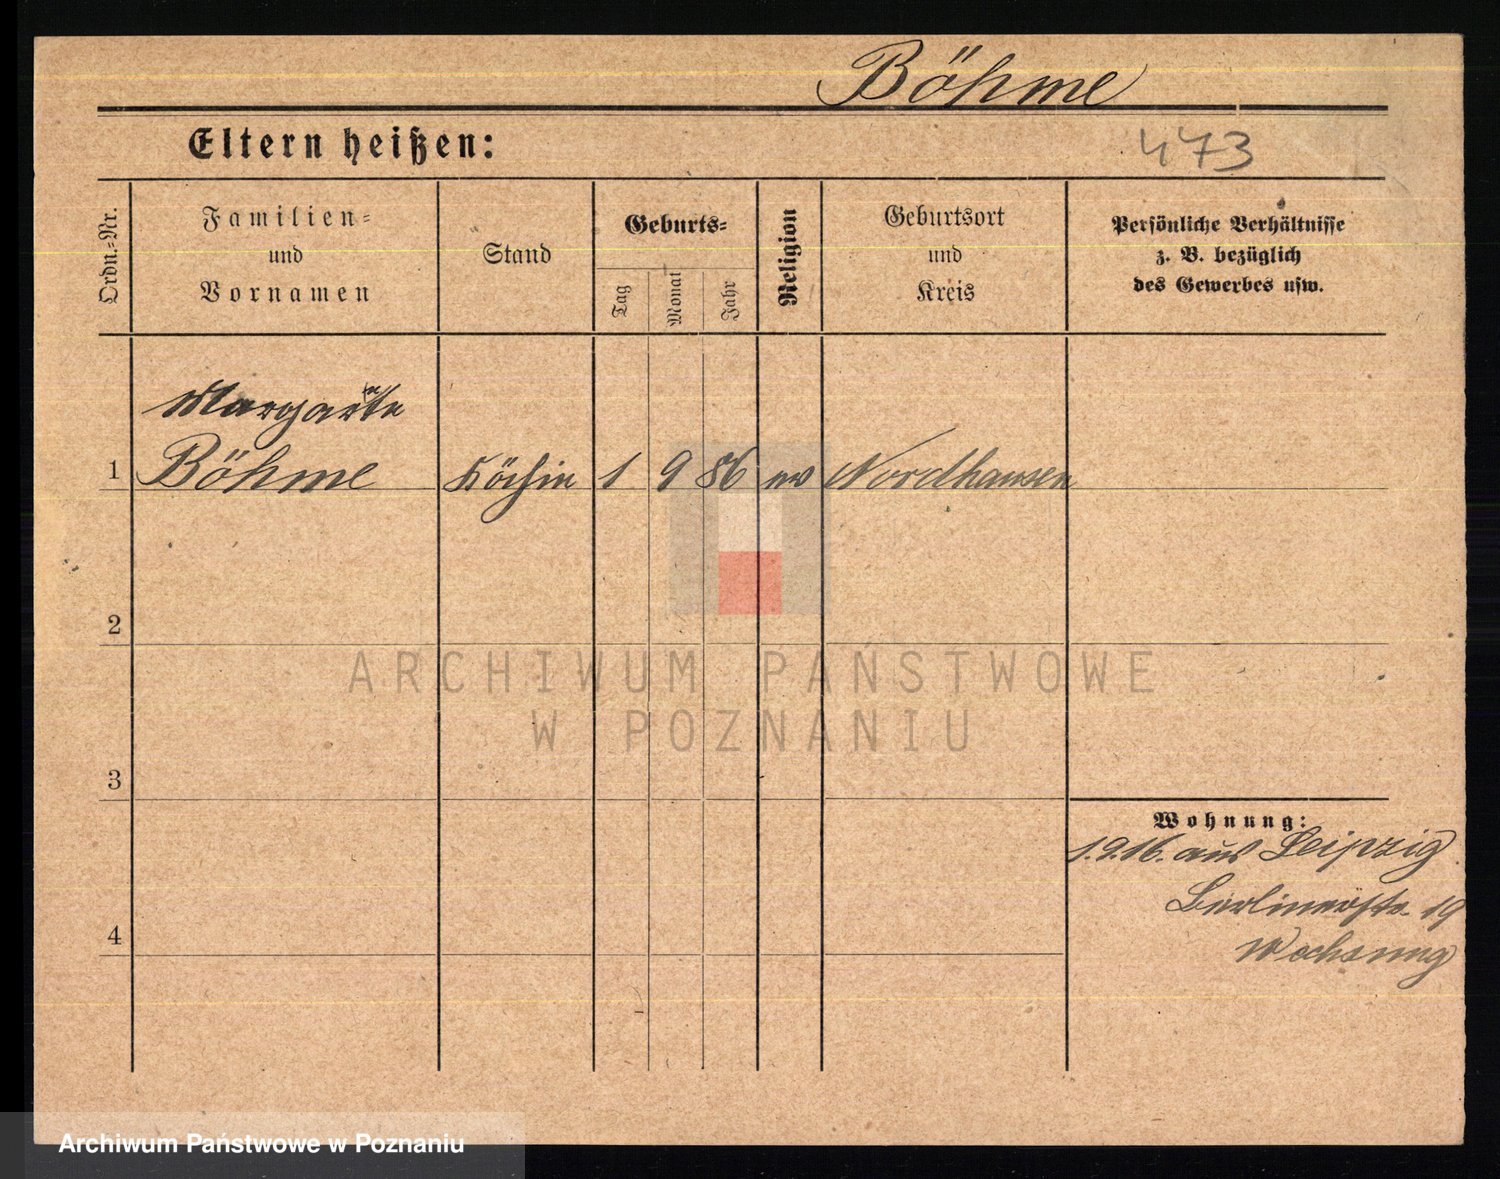 Böhme
Eltern heißen:
473
Ordn.=Nr.
Familien=
und
Vornamen
Stand
Geburts=
Tag
Monat
Jahr
Religion
Geburtsort
und
Kreis
Persönliche Verhältnisse
z. B. bezüglich
des Gewerbes usw.
Margarete
1 Böhme Köchin 1 9 86 ev Nordhausen
2
3
4
Wohnung:
1.9.16. aus Leipzig
Berlinerstr. 19
ARCHIWUM PAŃSTWOWE
W POZNANIU
Archiwum Państwowe w Poznaniu